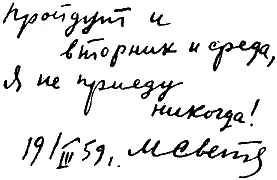 Пройдут и
вторник и среда,
Я не приеду
никогда!
19/III 59, МСвет